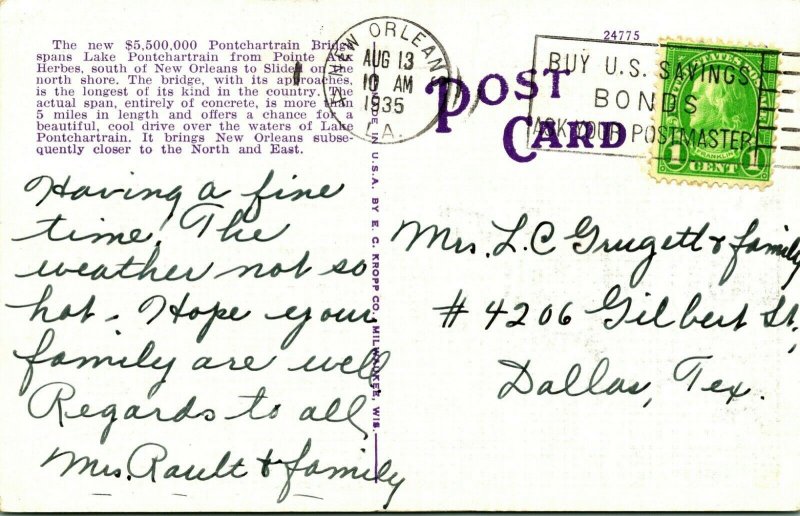 The new $5,500,000 Pontchartrain Bridge
spans Lake Pontchartrain from Pointe Aux
Herbes, south of New Orleans to Slidell on the
north shore. The bridge, with its approaches,
is the longest of its kind in the country. The
actual span, entirely of concrete, is more than
5 miles in length and offers a chance for a
beautiful, cool drive over the waters of Lake
Pontchartrain. It brings New Orleans subse-
quently closer to the North and East.
NEW ORLEANS
AUG 13
10 AM
1935
LA.
POST
CARD
24775
BUY U.S. SAVINGS
BONDS
ASK YOUR POSTMASTER
UNITED STATES POSTAGE
FRANKLIN
1 1
CENT
MADE IN U.S.A. BY E. C. KROPP CO., MILWAUKEE, WIS.
Having a fine
time. The
weather not so
hot. Hope your
family are well
Regards to all,
Mrs. Rault & family
Mrs. L. C Grugett & family
# 4206 Gilbert St,
Dallas, Tex.